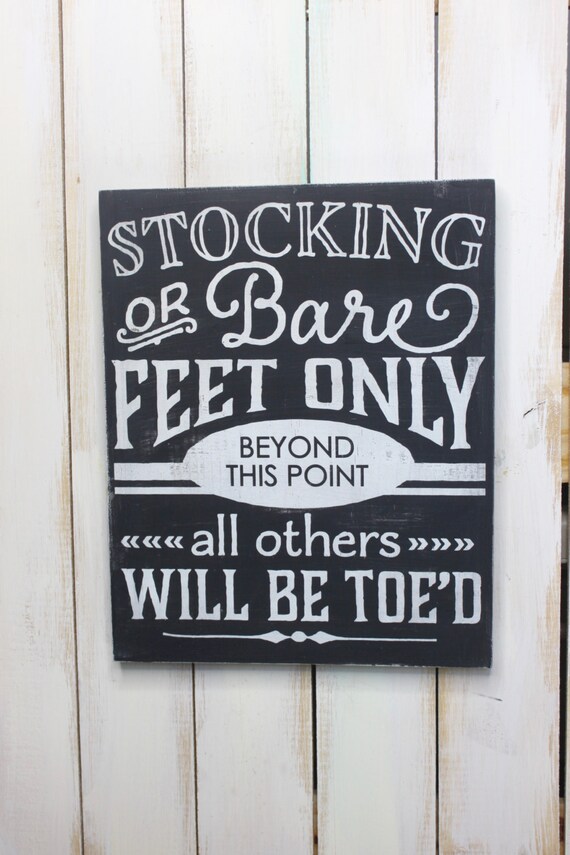 STOCKING
OR Bare
FEET ONLY
BEYOND
THIS POINT
««« all others »»»
WILL BE TOE'D